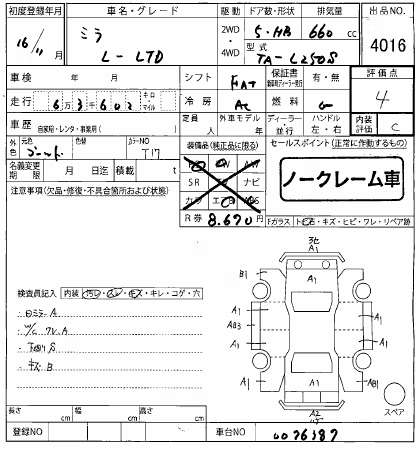 初度登録年月 車名・グレード 駆動 ドア数・形状 排気量 出品NO.
16/11月 ミラ 2WD・4WD 5・HB 660 cc 4016
L-LTD 型式 TA-L250S
車検 年 月 シフト FAT 保証書 有・無 評価点
走行 6万3千602 キロ マイル 冷房 AC 燃料 G 4
車歴 自家用・レンタ・事業用( ) 定員 人 外車モデル 年 ディーラー・並行 ハンドル 左・右 内装評価 C
外色 元色 ゴールド 色替 カラーNO T17 装備品(純正品に限る) セールスポイント(正常に作動するもの)
名義変更期限 月 日迄 積載 t SR ナビ ノークレーム車
注意事項(欠品・修復・不具合箇所および状態) カワ エアB
R券 8.670円 Fガラス トビ石・キズ・ヒビ・ワレ・リペア跡
検査員記入 内装 汚レ・スレ・キズ・キレ・コゲ・穴
ロミラーA
W/C ワレ.A
下回りS
キズB
A1
B1 A1
A1 A1
AB3 A1
A1 A1
A1 A1 AB1
A2
スペア
長さ cm 幅 cm 高さ cm
登録NO 車台NO 0076387